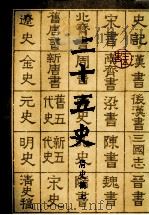 史記 漢書 後漢書 三國志 晉書
宋書 南齊書 梁書 陳書 魏書
北齊書 周書
二十五史
舊唐書 新唐書 舊五代史 新五代史 宋史
遼史 金史 元史 明史 清史稿